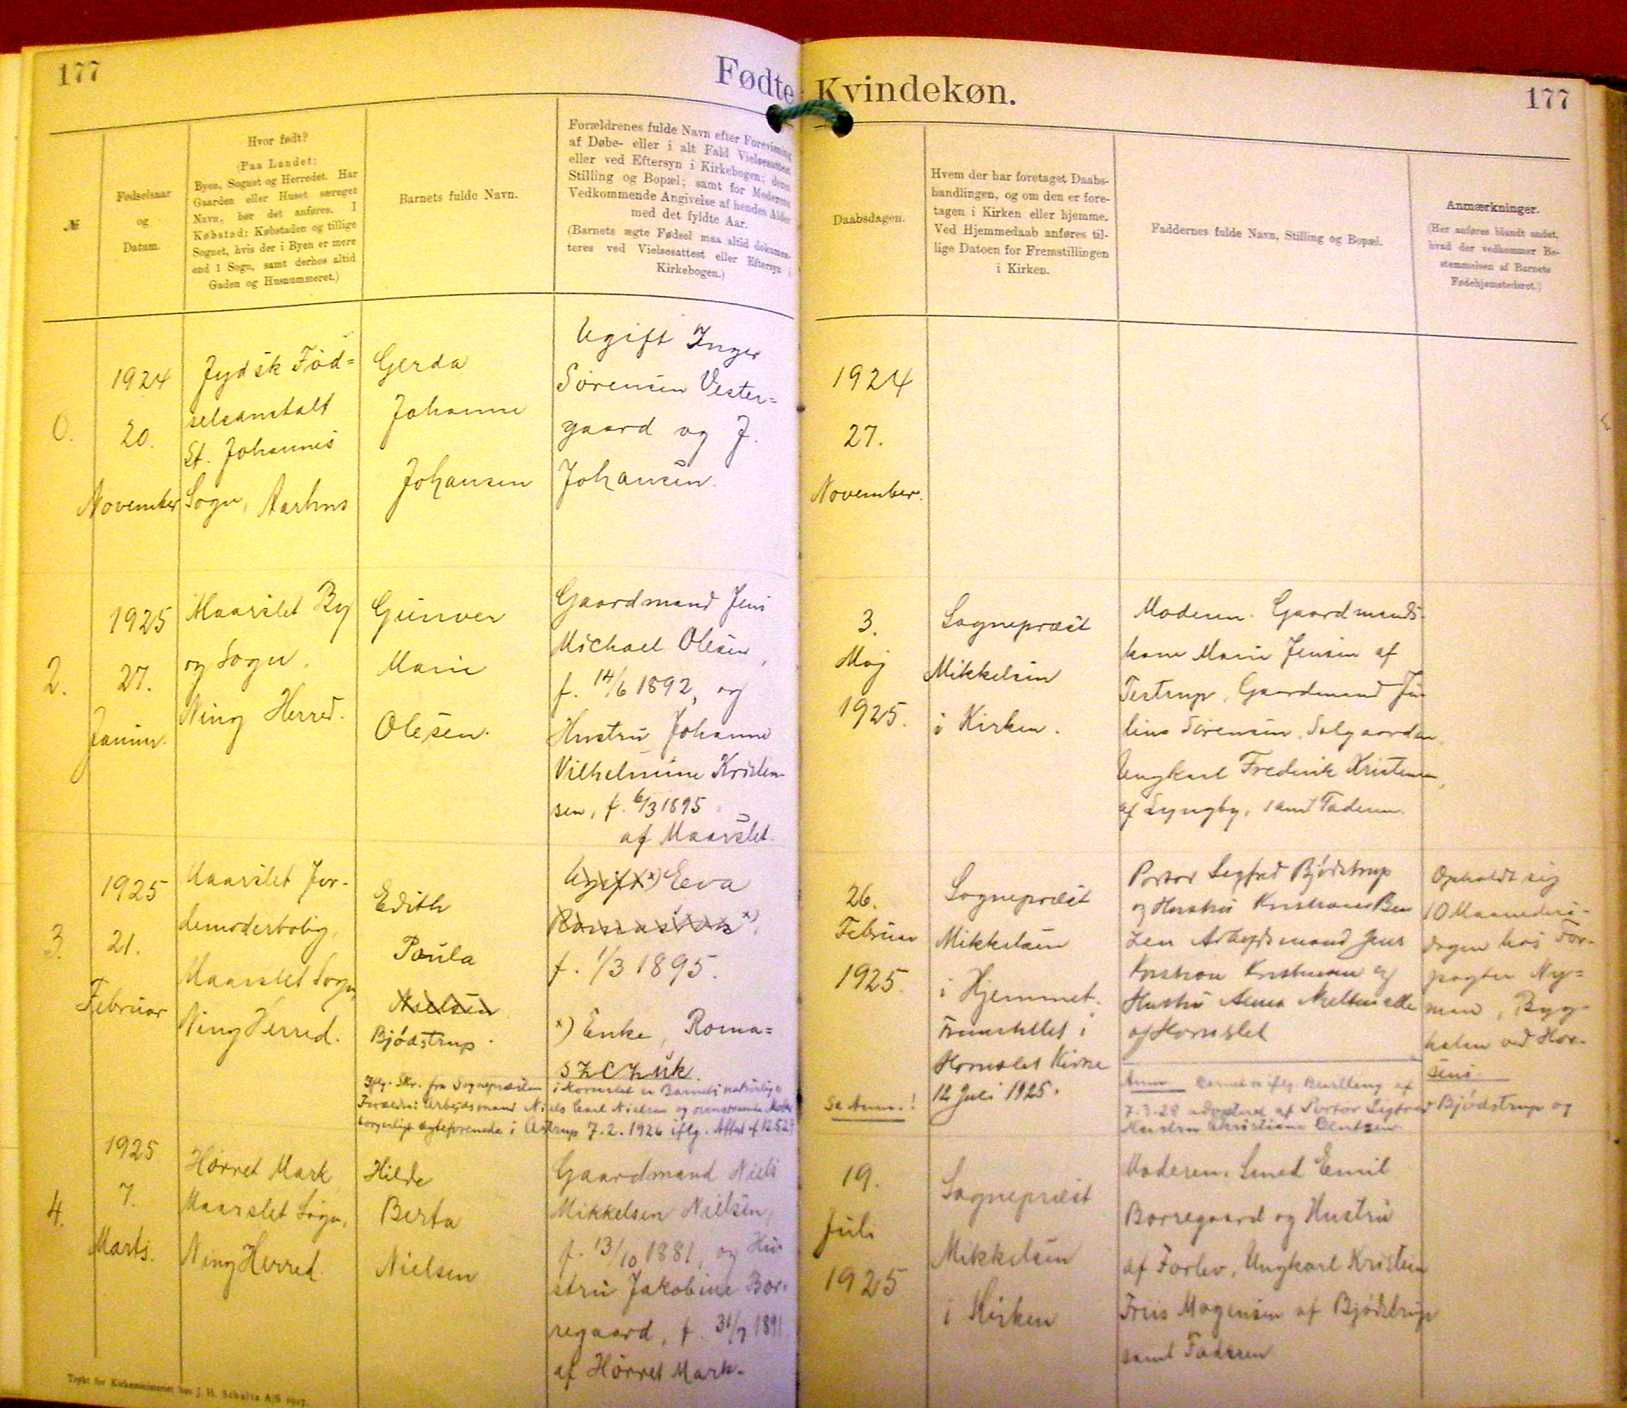 177
Fødte
Kvindekøn.
177
№
Fødselsaar
og
Datum.
Hvor født?
(Paa Landet:
Byen, Sognet og Herredet. Har
Gaarden eller Huset særeget
Navn, bør det anføres. I
Købstad: Købstaden og tillige
Sognet, hvis der i Byen er mere
end 1 Sogn, samt derhos altid
Gaden og Husnummeret.)
Barnets fulde Navn.
Forældrenes fulde Navn efter Forevisning
af Døbe- eller i alt Fald Vielsesattest
eller ved Eftersyn i Kirkebogen; deres
Stilling og Bopæl; samt for Moderens
Vedkommende Angivelse af hendes Alder
med det fyldte Aar.
(Barnets ægte Fødsel maa altid dokumen-
teres ved Vielsesattest eller Eftersyn i
Kirkebogen.)
Daabsdagen.
Hvem der har foretaget Daabs-
handlingen, og om den er fore-
tagen i Kirken eller hjemme.
Ved Hjemmedaab anføres til-
lige Datoen for Fremstillingen
i Kirken.
Faddernes fulde Navn, Stilling og Bopæl.
Anmærkninger.
(Her anføres blandt andet,
hvad der vedkommer Be-
stemmelsen af Barnets
Fødehjemstedsret.)
0.
1924
20.
November
Jydsk Fød=
selsanstalt
St. Johannes
Sogn, Aarhus
Gerda
Johanne
Johansen
Ugift Inger
Sørensen Vester=
gaard og J.
Johansen.
1924
27.
November.
2.
1925
27.
Januar.
Maarslet By
og Sogn.
Ning Herred.
Gunver
Marie
Olesen.
Gaardmand Jens
Michael Olesen,
f. 14/6 1892, og
Hustru Johanne
Vilhelmine Kristen-
sen, f. 6/3 1895
af Maarslet.
3.
Maj
1925.
Sognepræst
Mikkelsen
i Kirken.
Moderen. Gaardmands-
kone Marie Jensen af
Testrup, Gaardmand Ju-
lius Sørensen, Solgaarden
Ungkarl Frederik Kristensen,
af Lyngby, samt Faderen.
3.
1925
21.
Februar
Maarslet Jor-
demoderbolig,
Maarslet Sogn,
Ning Herred.
Edith
Paula
Nielsen
Bjødstrup.
Ugift x) Eeva
x),
f. 1/3 1895.
x) Enke, Roma=
szczuk.
Iflg. Skr. fra Sognepræsten i Hornslet er Barnets naturlige
Forældre: Arbejdsmand Niels Carl Nielsen og ovennævnte Moder
borgerligt ægteforenede i Astrup 7.2.1926 iflg. Attest af
26.
Februar
1925.
Se Anm.!
Sognepræst
Mikkelsen
i Hjemmet.
Fremstillet i
Hornslet Kirke
12 Juli 1925.
Portør Sigfred Bjødstrup
og Hustru Kristiane Ben
tzen Arbejdsmand Jens
Kristian Kristensen og
Hustru Anna alle
af Hornslet
Anm. Barnet er iflg. Bevilling af
7-3-28 adopteret af Portør Sigfred Bjødstrup og
Hustru Christiane Bentzen.
Opholdt sig
10 Maaneders-
dagen hos For-
pagter Ny=
man, Byg-
holm ved Hor-
sens.
4.
1925
7.
Marts.
Hørret Mark
Maarslet Sogn,
Ning Herred.
Hilde
Berta
Nielsen
Gaardmand Niels
Mikkelsen Nielsen,
f. 13/10 1881, og Hu-
stru Jakobine Bor-
regaard, f. 31/7 1891
af Hørret Mark.
19.
Juli
1925
Sognepræst
Mikkelsen
i Kirken
Moderen. Smed Emil
Borregaard og Hustru
af Forlev, Ungkarl Kristian
Friis Mogensen af Bjødstrup
samt Faderen
Trykt for Kirkeministeriet hos J. H. Schultz A/S 1917.